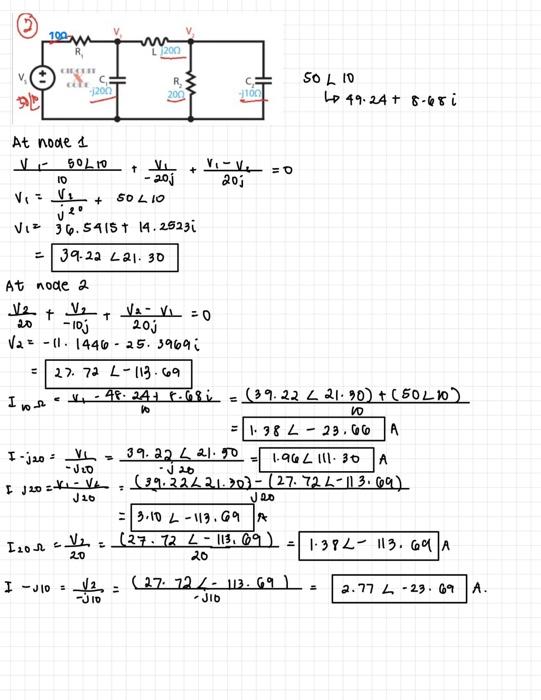 2
10Ω
R₁
V₁
L
j20Ω
V₂
V₁
CIRCUIT
CODE
C₁
-j20Ω
R₂
20Ω
C₂
-j10Ω
50∠10
50∠10
↳ 49.24 + 8.68i
At node 1
(V₁ - 50∠10)/10 + V₁/(-20j) + (V₁ - V₂)/(20j) = 0
V₁ = V₂/(j20) + 50∠10
V₁ = 36.5415 + 14.2523i
= 39.22 ∠21.30
At node 2
V₂/20 + V₂/(-10j) + (V₂ - V₁)/(20j) = 0
V₂ = -11.1446 - 25.3969i
= 27.72 ∠-113.69
I 10Ω = (V₁ - 48.24 + 8.68i)/10 = ((39.22 ∠21.30) + (50∠10))/10
= 1.38 ∠-23.66 A
I -j20 = V₁/(-j20) = (39.22∠21.30)/(-j20) = 1.96∠111.30 A
I j20 = (V₁ - V₂)/(j20) = ((39.22∠21.30) - (27.72∠-113.69))/(j20)
= 3.10 ∠-113.69 A
I 20Ω = V₂/20 = (27.72 ∠-113.69)/20 = 1.38∠-113.69 A
I -j10 = V₂/(-j10) = (27.72∠-113.69)/(-j10) = 2.77 ∠-23.69 A.